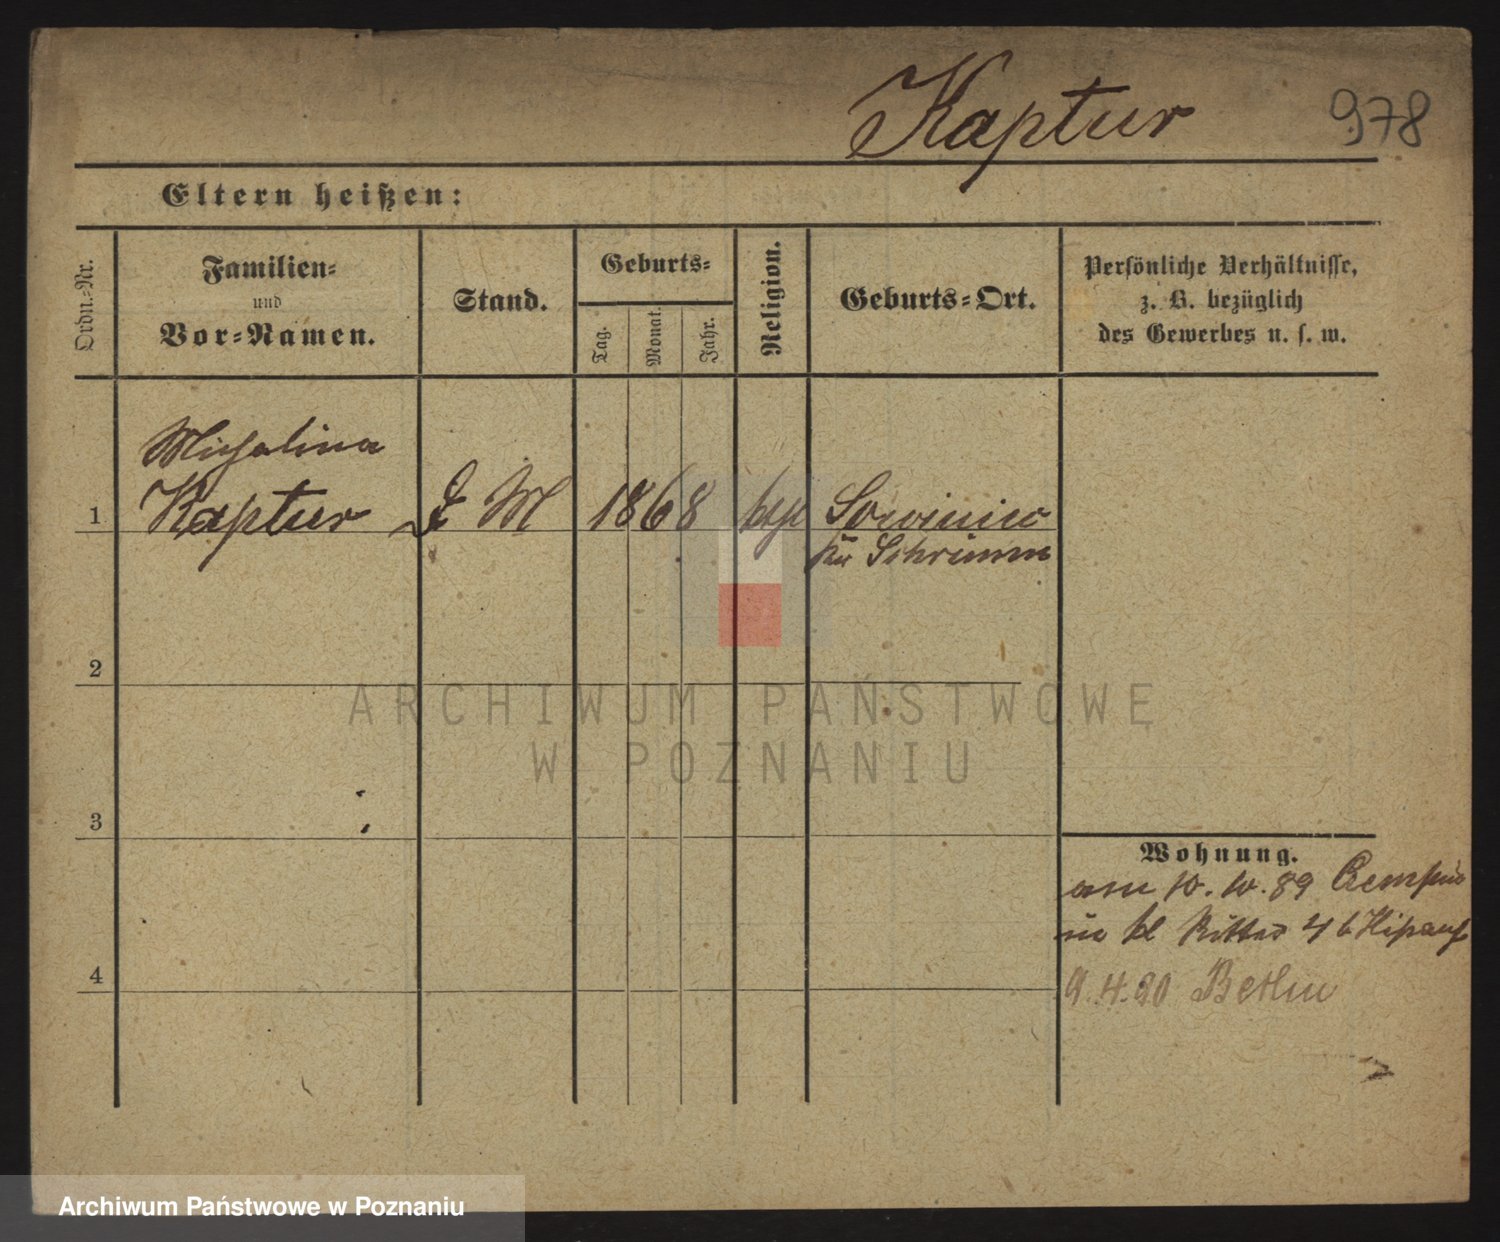 Kaptur 978
Eltern heißen:
Ordn.-Nr.
Familien-
und
Vor-Namen.
Stand.
Geburts-
Tag.
Monat.
Jahr.
Religion.
Geburts-Ort.
Persönliche Verhältnisse,
z. B. bezüglich
des Gewerbes u. s. w.
Michalina
1 Kaptur D M 1868 Sowiniec
Kr Schrimm
2
ARCHIWUM PAŃSTWOWE
W POZNANIU
3
Wohnung.
am 10. 10. 89
kl Ritter 4 b
4
9. 4. 90 Berlin
Archiwum Państwowe w Poznaniu